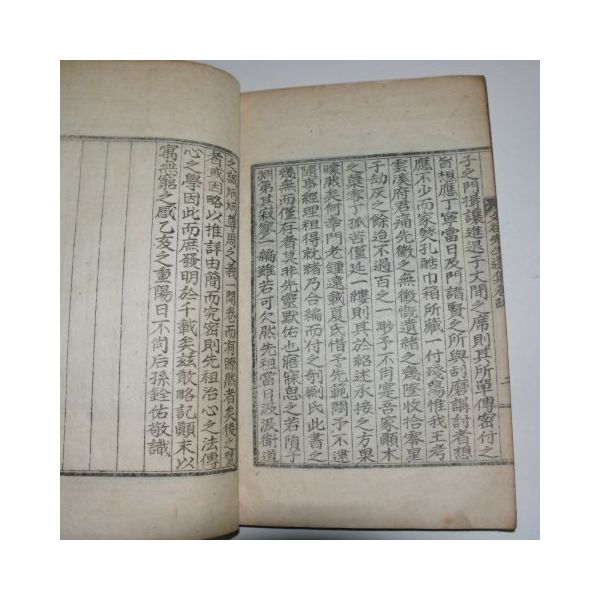 子之門揖讓進退于丈間之席則其所單傳密付之
旨想應丁寧當日及門諸賢之所與刮磨講討者想
應不少而家發孔酷巾箱所藏一付殘惟我王考
雲溪府君痛先徽之無徵慨遺緖之幾墜收拾零星
于劫灰之餘迨不過百之一眇予不肖寔吾家顚木
之蘖零丁孤苦僅延一縷則其於紹述承接之方果
矇然矣何幸門老鍾遠載夏氏惜予先範問予不逮
隨事經理租得就緖乃合編而付之剞劂氏此書之
殘無而僅存者莫非先靈默佑也寤寐思之若隕于
淵第其寂寥一編雖若可欠然先祖當日汲汲衛道
之誠炳炳尊周之義一開卷而有瞭然者矣後之覽
者或因略以推詳由簡而究密則先祖治心之法傳
心之學因此而庶發明於千載矣玆敢略記顚末以
寓無窮之感乙亥之重陽日不肖后孫銓佑敬識
谷先生逸集卷
二